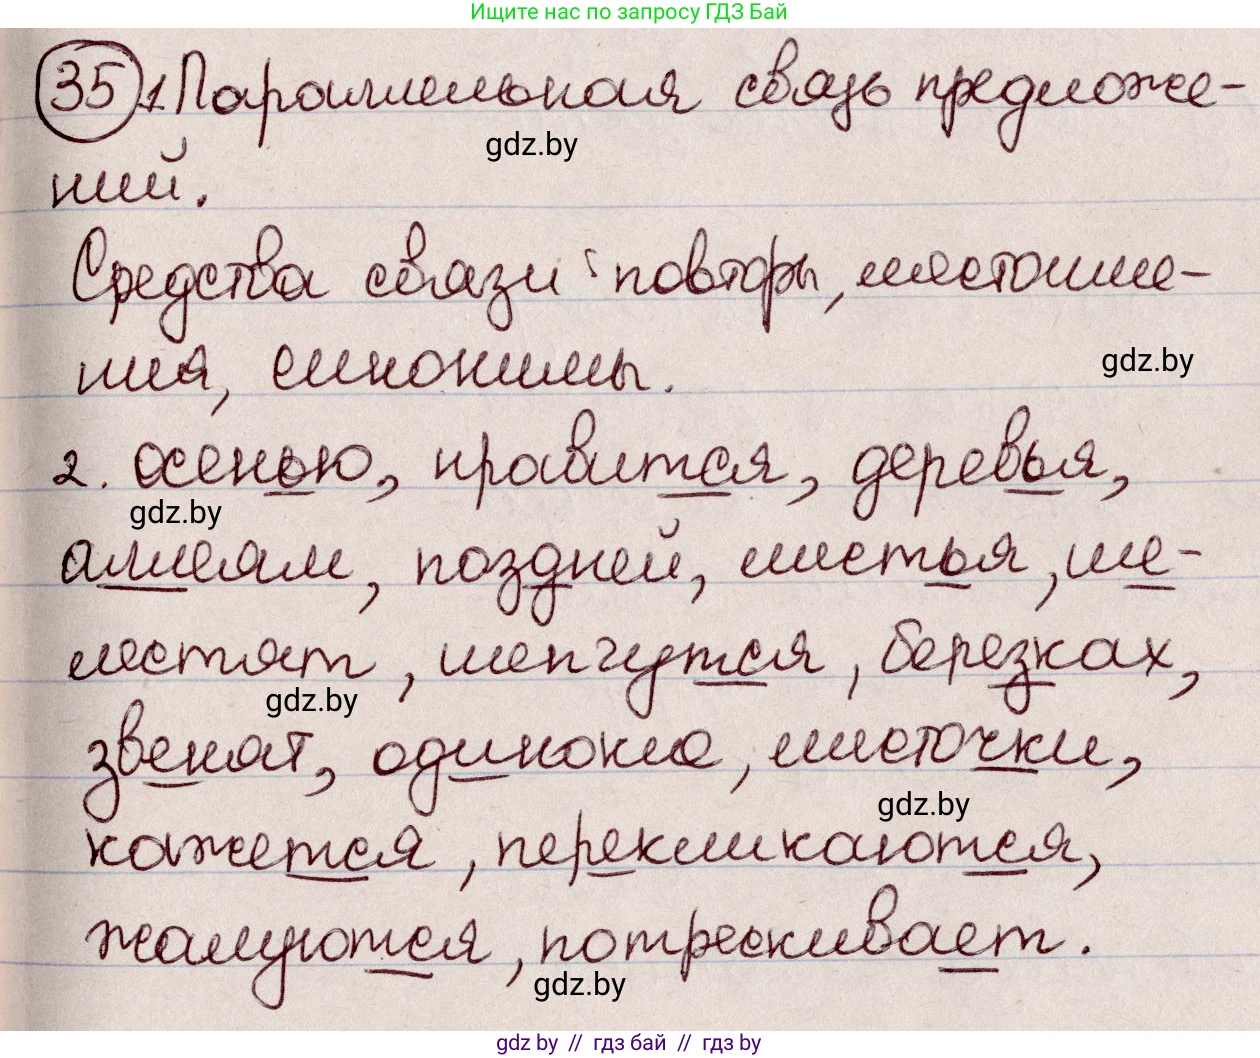 Ищите нас по запросу ГДЗ Бай
35 1. Параллельная связь предложе-
gdz.by
ний.
Средства связи: повторы, местоиме-
ния, синонимы.
gdz.by
2. осенью, нравится, деревья,
gdz.by
аллеям, поздней, листья, ше-
лестят, шепчутся, березках,
gdz.by
звенят, одиноко, листочки,
gdz.by
кажется, перекликаются,
жалуются, потрескивает.
gdz.by
gdz.by // гдз бай // гдз by